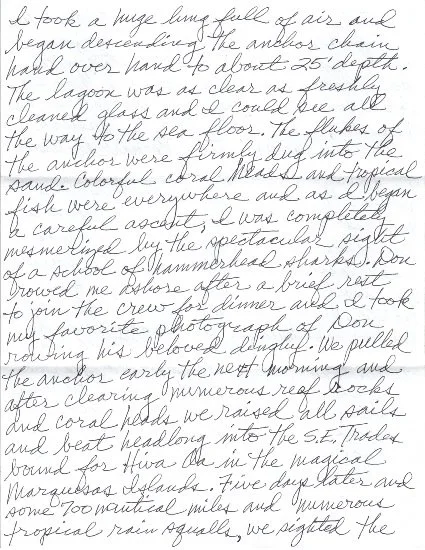 I took a huge lung full of air and
began descending the anchor chain
hand over hand to about 25' depth.
The lagoon was as clear as freshly
cleaned glass and I could see all
the way to the sea floor. The flukes of
the anchor were firmly dug into the
sand. Colorful coral heads and tropical
fish were everywhere and as I began
a careful ascent, I was completely
mesmerized by the spectacular sight
of a school of hammerhead sharks. Don
rowed me ashore after a brief rest
to join the crew for dinner and I took
my favorite photograph of Don
rowing his beloved dinghy. We pulled
the anchor early the next morning and
after clearing numerous reef rocks
and coral heads we raised all sails
and beat headlong into the S.E. Trades
bound for Hiva Oa in the magical
Marquesas Islands. Five days later and
some 700 nautical miles and numerous
tropical rain squalls, we sighted the